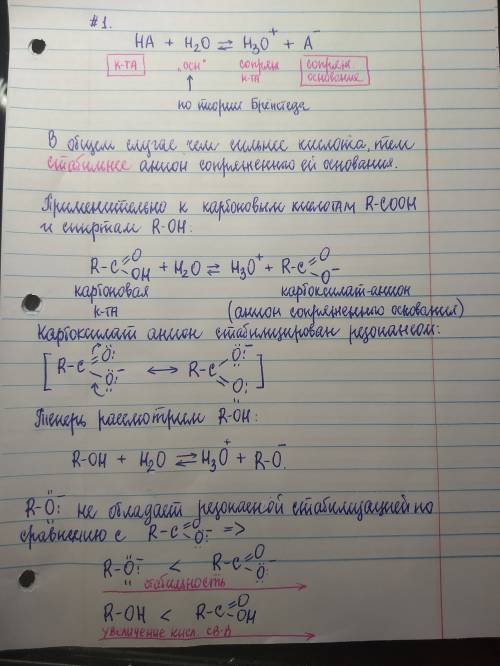 #1.
HA + H2O ⇌ H3O+ + A−
к-та „осн" сопряж. к-та сопряж. основание
по теории Бренстеда
В общем случае чем сильнее кислота, тем
стабильнее анион сопряженного ей основания.
Применительно к карбоновым кислотам R-COOH
и спиртам R-OH:
R-C(=O)OH + H2O ⇌ H3O+ + R-C(=O)O−
карбоновая к-та карбоксилат-анион
(анион сопряженного основания)
Карбоксилат анион стабилизирован резонансом:
[R-C(=O)O− ↔ R-C(O−)=O]
Теперь рассмотрим R-OH:
R-OH + H2O ⇌ H3O+ + R-O−.
R-O− не обладает резонасной стабилизацией по
сравнению с R-C(=O)O− =>
R-O− < R-C(=O)O−
стабильность
R-OH < R-C(=O)OH
увеличение кисл. св-в